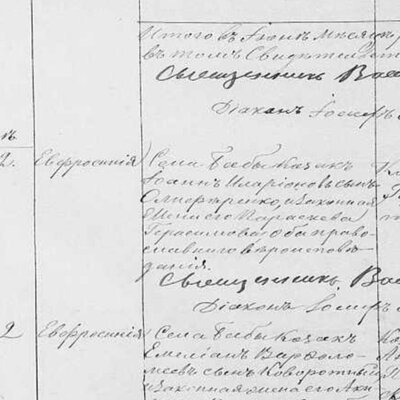 Итого въ Іюнѣ Мѣсяцѣ
въ томъ Свидѣтельст
Священникъ Вас
Діаконъ Іосифъ
2. Евфросинія Села Бабы Козакъ
Іоаннъ Иларіоновъ сынъ
и законная
жена его Параскева
Герасимова оба право
славнаго вѣроисповѣ
данія.
Священникъ Вас
Діаконъ Іосифъ
2 Евфросинія Села Бабы Козакъ
Емеліанъ Варфоло
меевъ сынъ
и законная жена его